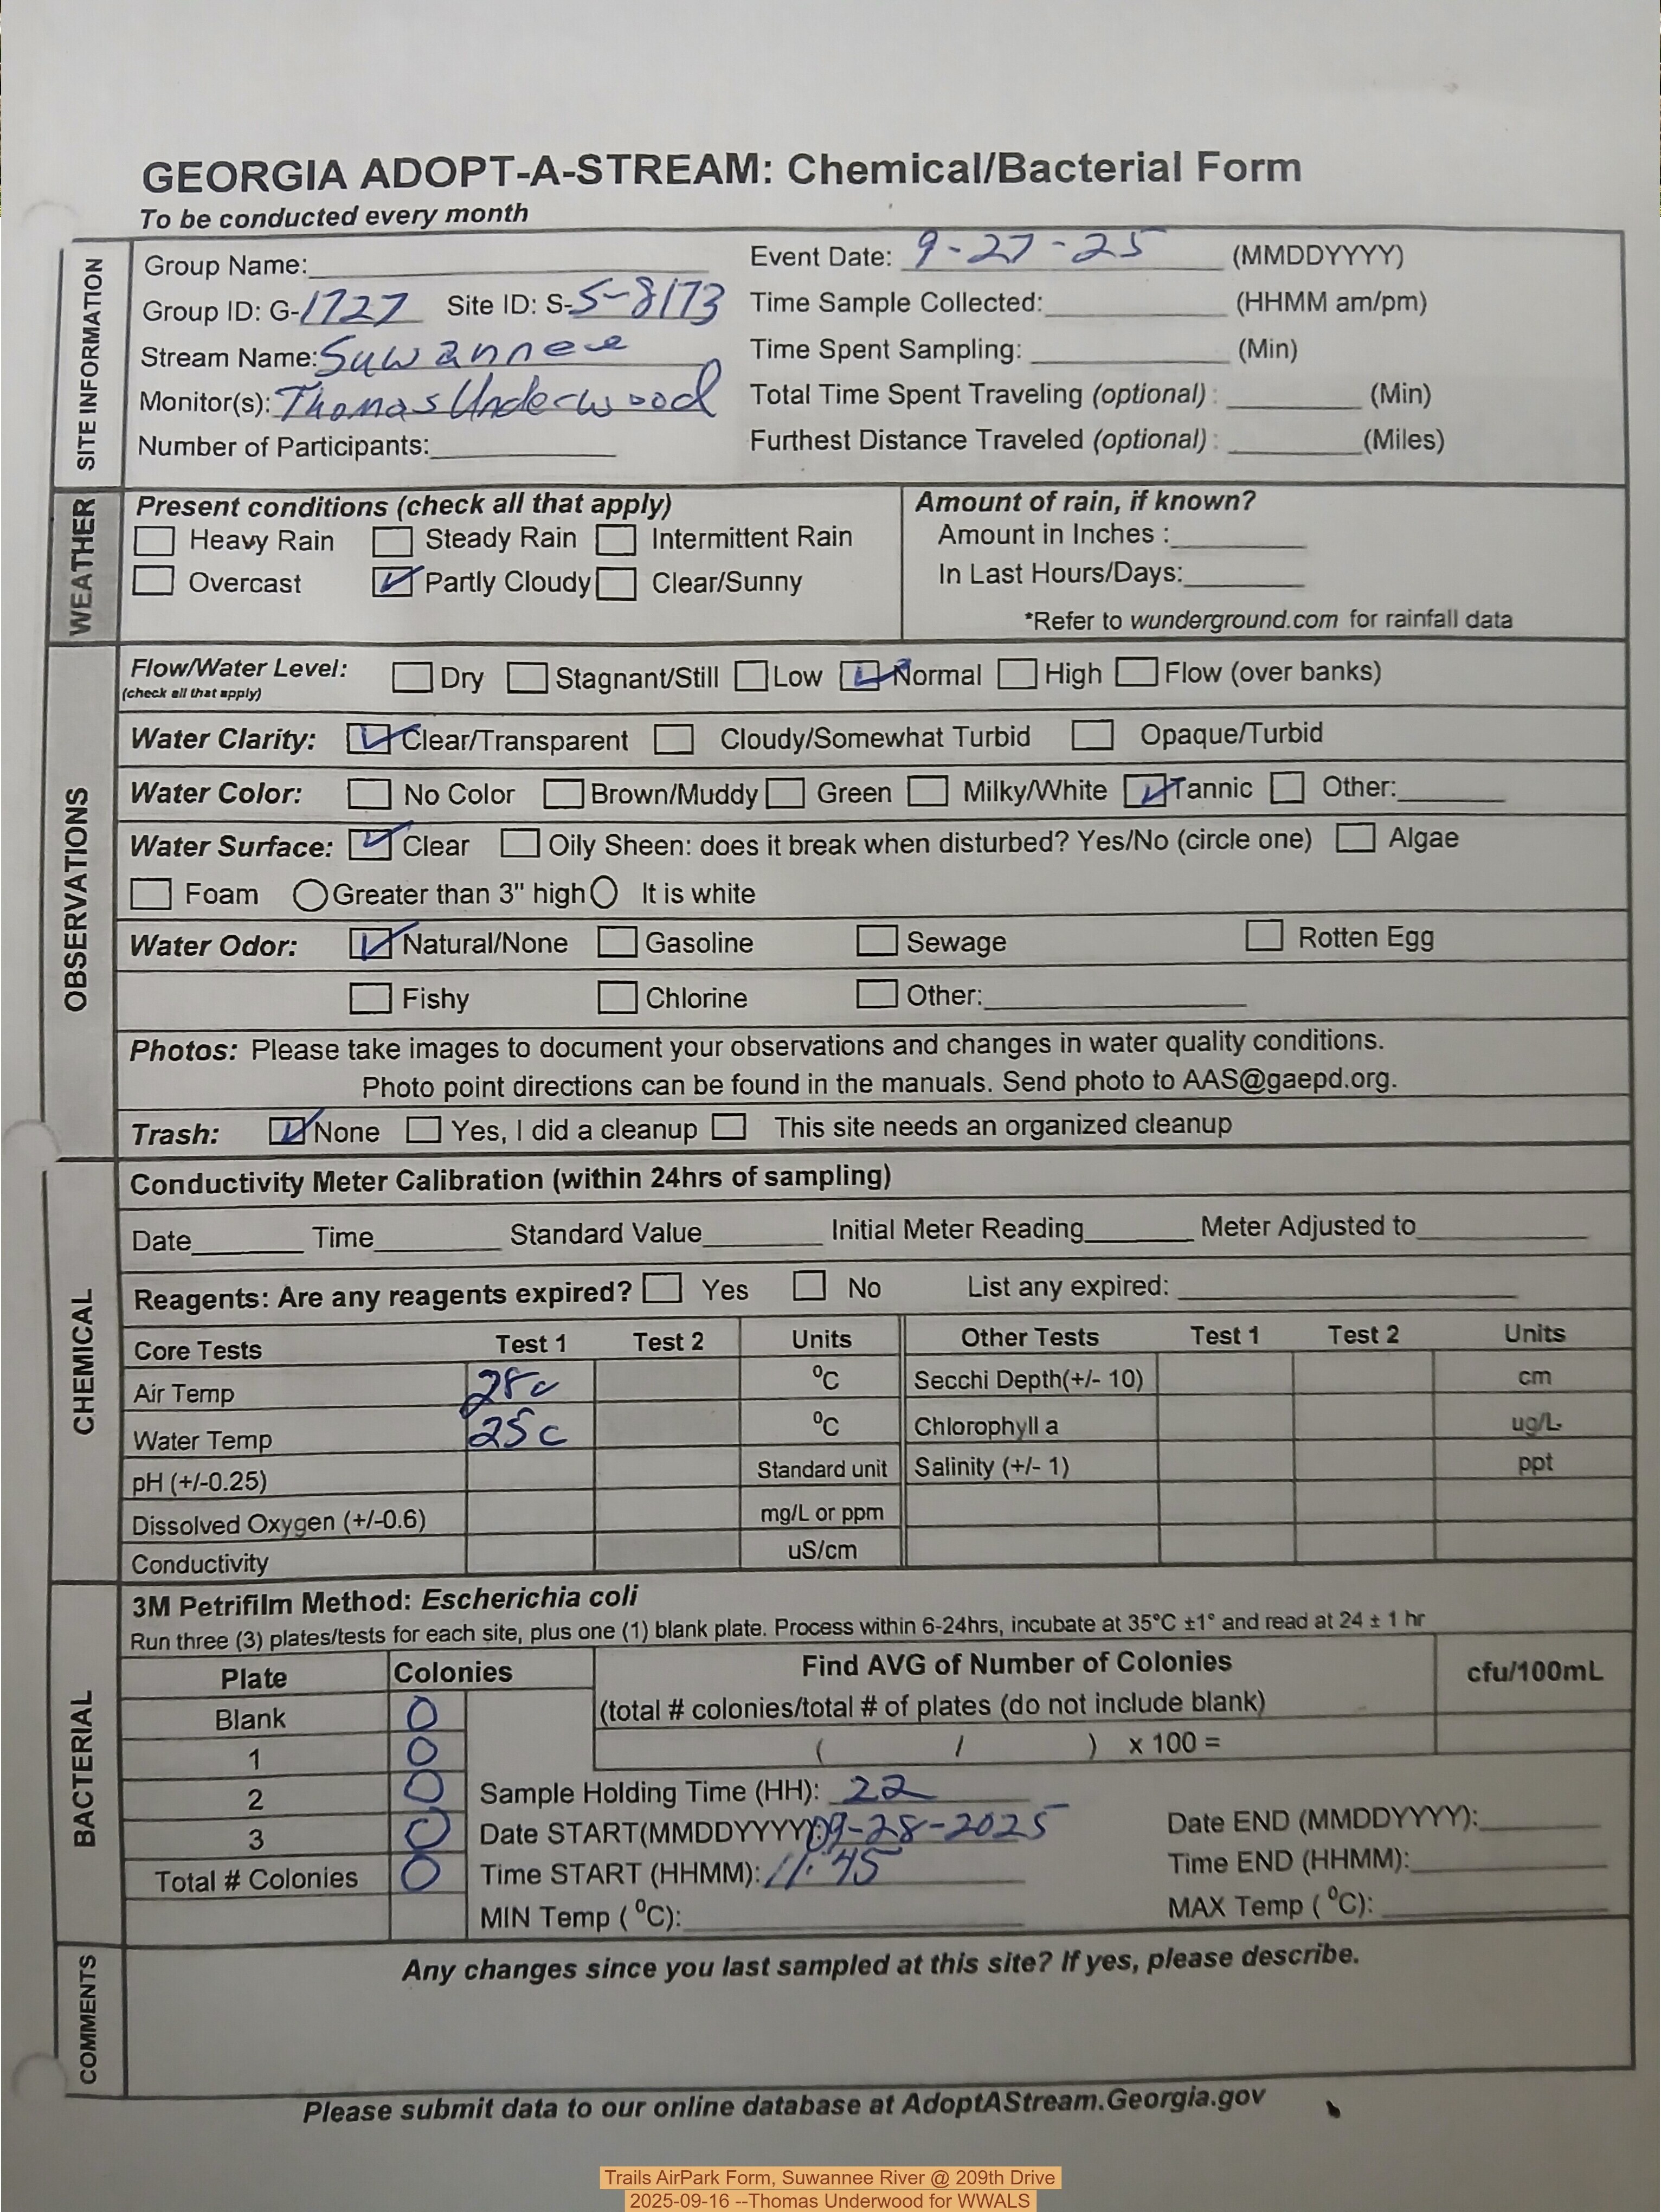 GEORGIA ADOPT-A-STREAM: Chemical/Bacterial Form
To be conducted every month
SITE INFORMATION
Group Name:
Group ID: G-1727 Site ID: S-S-8173
Stream Name: Suwannee
Monitor(s): Thomas Underwood
Number of Participants:
Event Date: 9-27-25 (MMDDYYYY)
Time Sample Collected: (HHMM am/pm)
Time Spent Sampling: (Min)
Total Time Spent Traveling (optional) : (Min)
Furthest Distance Traveled (optional) : (Miles)
WEATHER
Present conditions (check all that apply)
Heavy Rain Steady Rain Intermittent Rain
Overcast Partly Cloudy Clear/Sunny
Amount of rain, if known?
Amount in Inches :
In Last Hours/Days:
*Refer to wunderground.com for rainfall data
OBSERVATIONS
Flow/Water Level: Dry Stagnant/Still Low Normal High Flow (over banks)
(check all that apply)
Water Clarity: Clear/Transparent Cloudy/Somewhat Turbid Opaque/Turbid
Water Color: No Color Brown/Muddy Green Milky/White Tannic Other:
Water Surface: Clear Oily Sheen: does it break when disturbed? Yes/No (circle one) Algae
Foam Greater than 3" high It is white
Water Odor: Natural/None Gasoline Sewage Rotten Egg
Fishy Chlorine Other:
Photos: Please take images to document your observations and changes in water quality conditions.
Photo point directions can be found in the manuals. Send photo to AAS@gaepd.org.
Trash: None Yes, I did a cleanup This site needs an organized cleanup
CHEMICAL
Conductivity Meter Calibration (within 24hrs of sampling)
Date Time Standard Value Initial Meter Reading Meter Adjusted to
Reagents: Are any reagents expired? Yes No List any expired:
Core Tests Test 1 Test 2 Units Other Tests Test 1 Test 2 Units
Air Temp 28c °C Secchi Depth(+/- 10) cm
Water Temp 25c °C Chlorophyll a ug/L
pH (+/-0.25) Standard unit Salinity (+/- 1) ppt
Dissolved Oxygen (+/-0.6) mg/L or ppm
Conductivity uS/cm
BACTERIAL
3M Petrifilm Method: Escherichia coli
Run three (3) plates/tests for each site, plus one (1) blank plate. Process within 6-24hrs, incubate at 35°C ±1° and read at 24 ± 1 hr
Plate Colonies
Blank 0
1 0
2 0
3 0
Total # Colonies 0
Find AVG of Number of Colonies cfu/100mL
(total # colonies/total # of plates (do not include blank)
( / ) x 100 =
Sample Holding Time (HH): 22
Date START(MMDDYYYY): 09-28-2025
Time START (HHMM): 11:45
MIN Temp ( °C):
Date END (MMDDYYYY):
Time END (HHMM):
MAX Temp ( °C):
COMMENTS
Any changes since you last sampled at this site? If yes, please describe.
Please submit data to our online database at AdoptAStream.Georgia.gov
Trails AirPark Form, Suwannee River @ 209th Drive
2025-09-16 --Thomas Underwood for WWALS